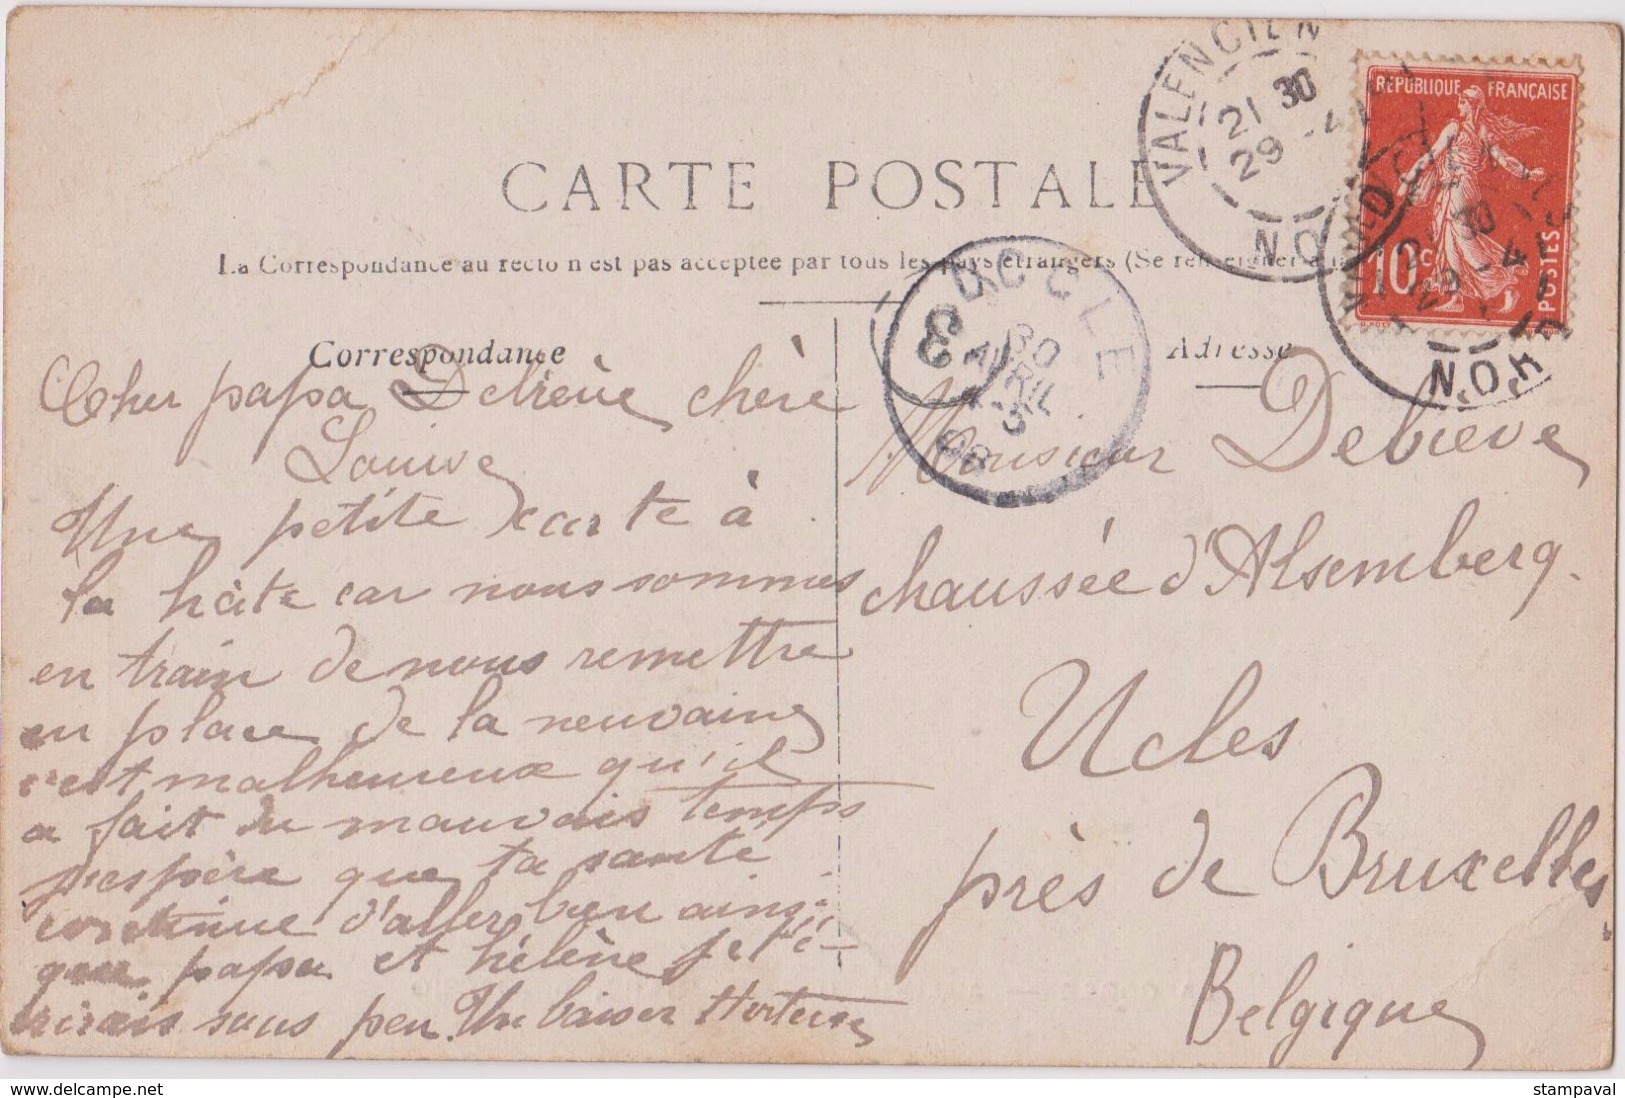 CARTE POSTALE
La Correspondance au recto n'est pas acceptée par tous les pays étrangers (Se renseigner à la
Correspondance
Adresse
RÉPUBLIQUE FRANÇAISE
10c
POSTES
VALENCIEN
21 30
29 -4
NORD
UCCLE
30
AVRIL
3
08
3
Cher papa Debiève chère
Louise
Une petite carte à
la hâte car nous sommes
en train de nous remettre
en place de la neuvaine
c'est malheureux qu'il
a fait du mauvais temps
j'espère que ta santé
continue d'aller bien ainsi
que papa et hélène je t'é-
crirais sous peu. Un baiser Hortense
Monsieur Debieve
chaussée d'Alsemberg.
Ucles
près de Bruxelles
Belgique
delcampe.net
stampaval